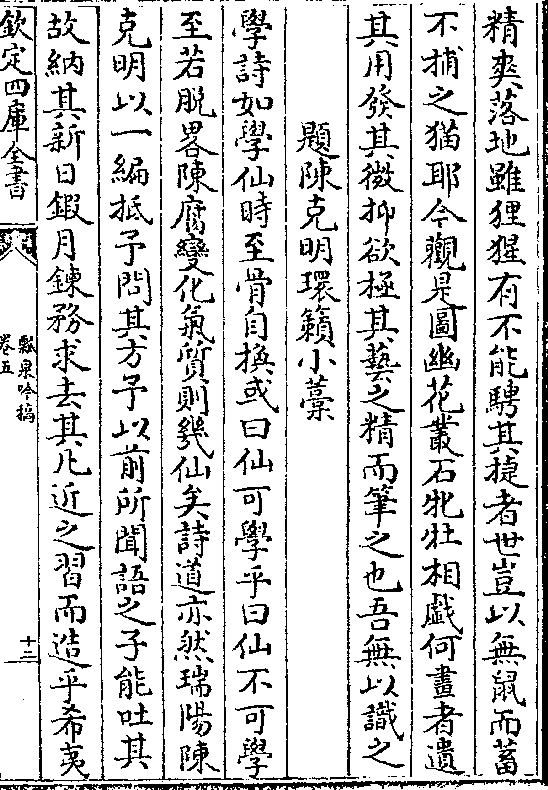 精爽落地雖狸猩有不能騁其捷者世豈以無鼠而蓄
不捕之猶耶今觀是圖幽花叢石牝牡相戲何畫者遺
其用發其微抑欲極其藝之精而筆之也吾無以識之
題陳克明環籟小藁
學詩如學仙時至骨自換或曰仙可學乎曰仙不可學
至若脱畧陳腐變化氣質則幾仙矣詩道亦然瑞陽陳
克明以一編抵予問其方予以前所聞語之子能吐其
故納其新日鍜月鍊務求去其凡近之習而造乎希夷
欽定四庫全書
瓢泉吟稿
卷五
十二